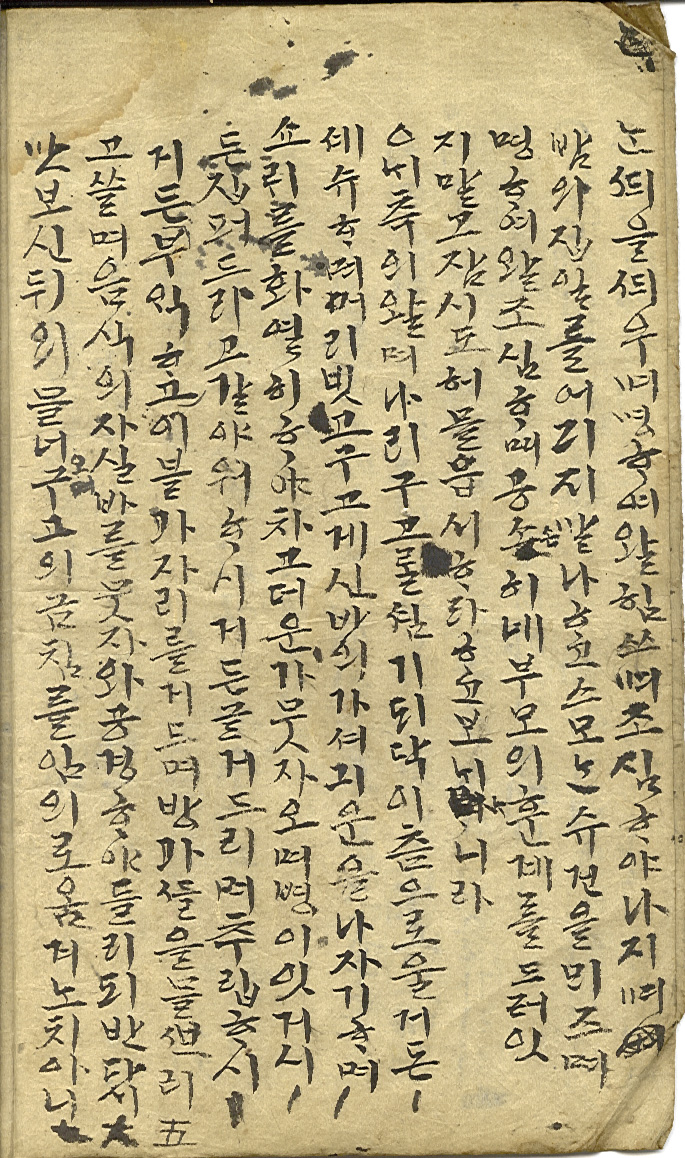 는 띄을 띄우며 명ᄒᆞ여 왈 힘쓰며 조심ᄒᆞ야 나지며
밤와 집안를 어긔지 말나 ᄒᆞ고 스모는 슈건을 ᄆᆡ즈며
명ᄒᆞ여 왈 조심ᄒᆞ며 공슌히 네 부모의 훈계를 드러 잇
지 말고 잠시도 허물 읍시 ᄒᆞ라 ᄒᆞ고 보니ᄂᆞ니라
ᄋᆞᄂᆡ측의 왈 며나리 구고를 셤기되 닥이 츰으로 울거든
셰슈ᄒᆞ며 머리 빗고 구고 게신 바의 가셔 긔운을 나자기 ᄒᆞ며
쇼리를 화열히 ᄒᆞ야 차고 더운가 뭇자오며 병이 잇거시
든 집퍼드리고 갈야워 ᄒᆞ시거든 글거드리며 츌립ᄒᆞ시
거든 부익ᄒᆞ고 이불과 자리를 거드며 방과 ᄯᅳᆯ을 물ᄲᅮ리
고 쓸며 음식의 자실 바를 뭇자와 공경ᄒᆞ야 드리되 반다시
맛보신 뒤의 물너오며 구고의 금침를 임의로 옴겨 노치 아니
五